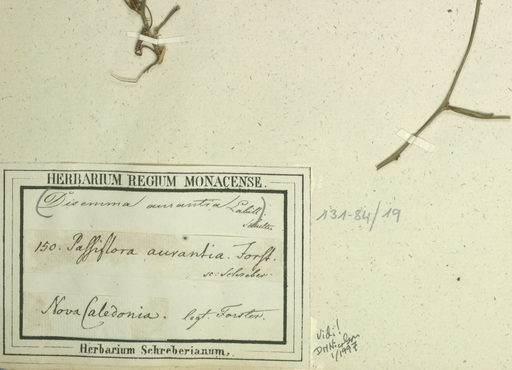 HERBARIUM REGIUM MONACENSE.
(Disemma aurantia Labill.)
Schultes
150. Passiflora aurantia. Forst.
sc: Schreber.
Nova Caledonia. legt. Forster.
Herbarium Schreberianum.
131-84/19
Vidi!
DHNicolson
1/1997